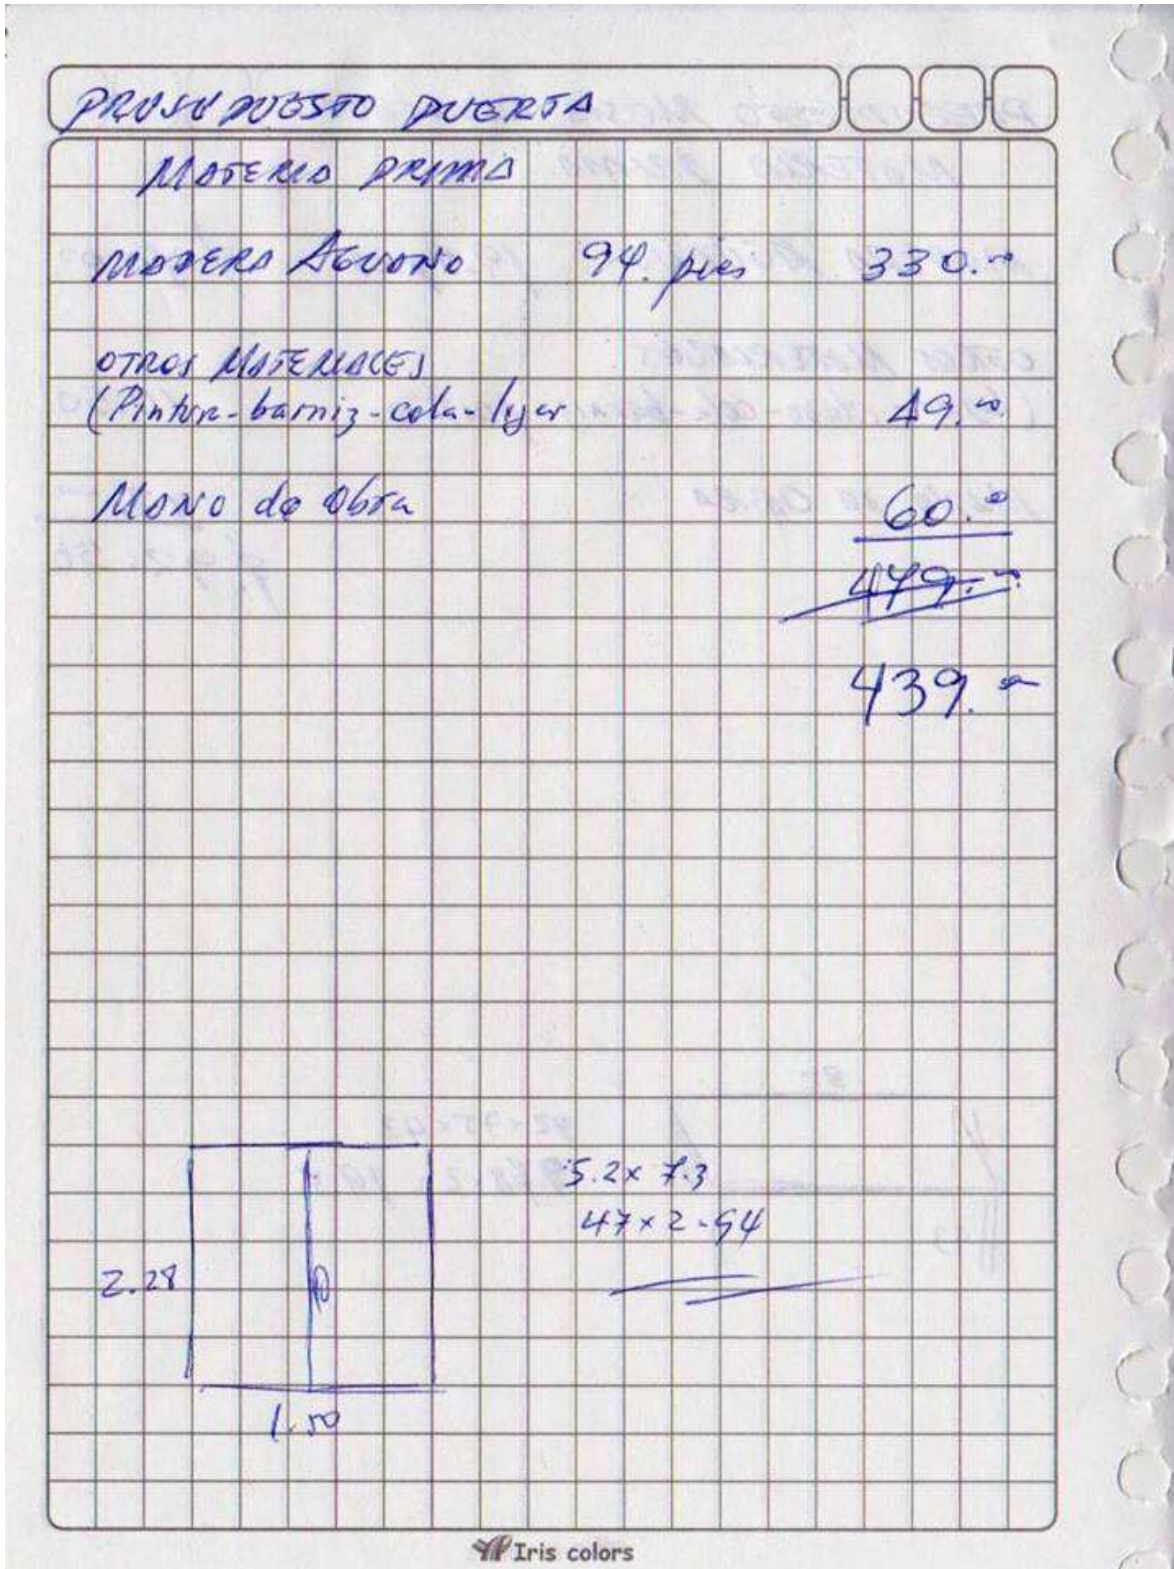 PRUSUPUESTO PUERTA
MATERIA PRIMA
MADERA AGUANO 94. pies 330.00
OTROS MATERIALES
(Pintura-barniz-cola-lijar 49.00
MANO de Obra 60.00
479.00
439.00
5.2 x 7.3
47 x 2 = 94
2.28
1.50
Iris colors